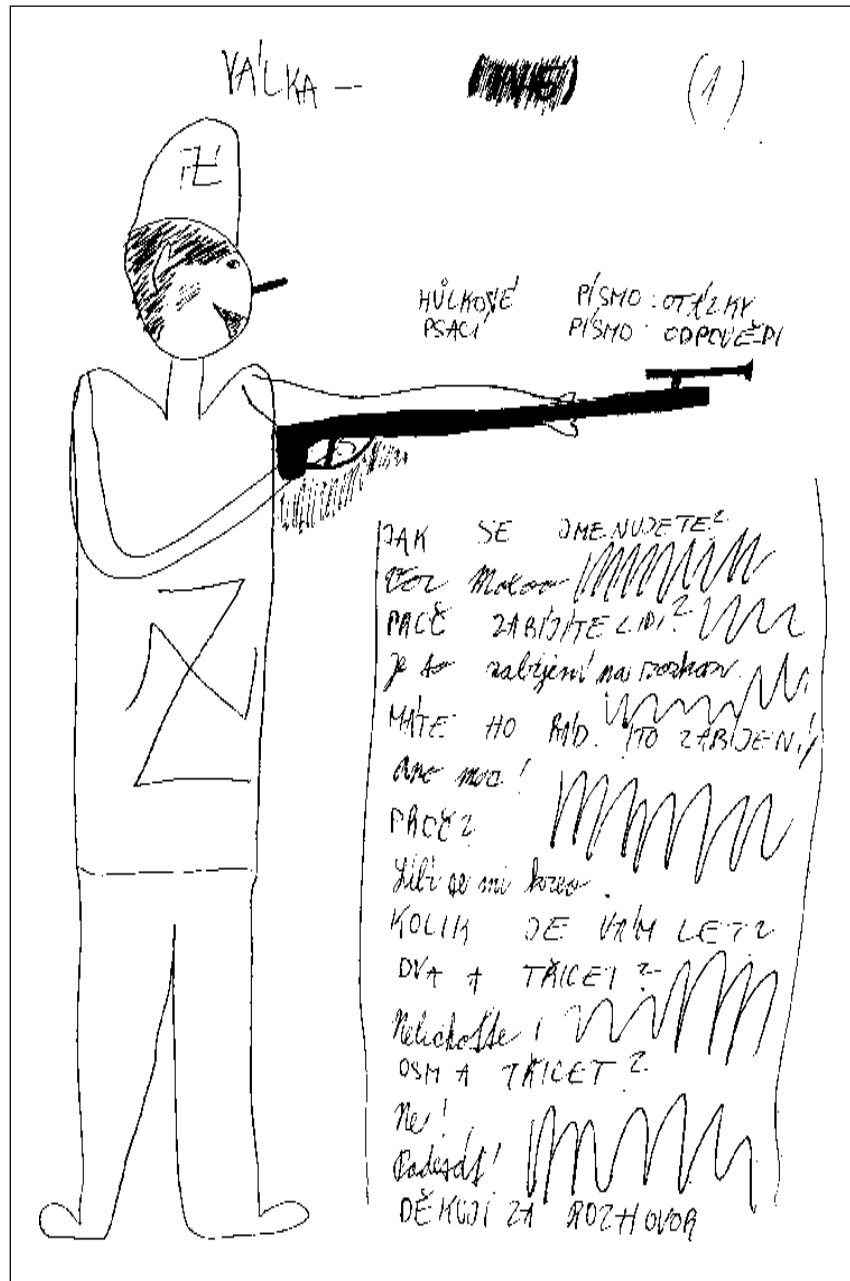 VÁLKA – (1)
HŮLKOVÉ PÍSMO: OTÁZKY
PSACÍ PÍSMO: ODPOVĚDI
JAK SE JMENUJETE?
PROČ ZABÍJÍTE LIDI?
Je to zabíjení na rozkaz.
MÁTE HO RÁD. (TO ZABÍJENÍ)
Ano moc!
PROČ?
Líbí se mi krev.
KOLIK JE VÁM LET?
DVA A TŘICET?
Nelichoťte!
OSM A TŘICET?
Ne!
Padesát!
DĚKUJI ZA ROZHOVOR